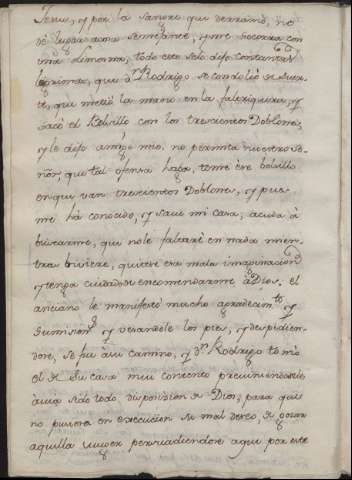 Jesus, y por la sangre que derramó, no
dé lugar a una semejante, y me socorra con
una limosna, todo esto selo dijo con tantas
lagrimas, que Dn Rodrigo se condolió de suer-
te, que metió la mano en la faltriquera, y
sacó el Bolsillo con los trescientos Doblones,
y le dijo amigo mio, no permita nuestro Se-
ñor, que tal ofensa haga, tome ese bolsillo
en que van trescientos Doblones, y pues
me há conocido, y save mi casa, acuda á
buscarme, que no le faltaré en nada mien-
tras biviere, quitese esa mala imaginacion
y tenga cuidado de encomendarme á Dios, el
anciano le manifestó mucho agradecimto y
sumision, y vesandole los pies, y despidien-
dose, se fue á su camino, y Dn Rodrigo tomó
el de su casa muy contento presumiendo
avia sido todo disposicion de Dios, para que
no pusiera en execucion su mal deseo, de gozar
aquella muger persuadiendose aqui por este